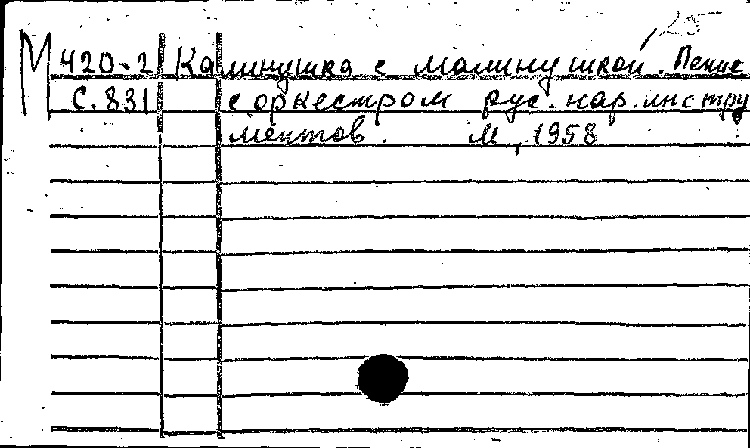 ,25
М 420-2 Калинушка с малинушкой. Пение
С.831 с оркестром рус. нар. инстру
ментов. М, 1958